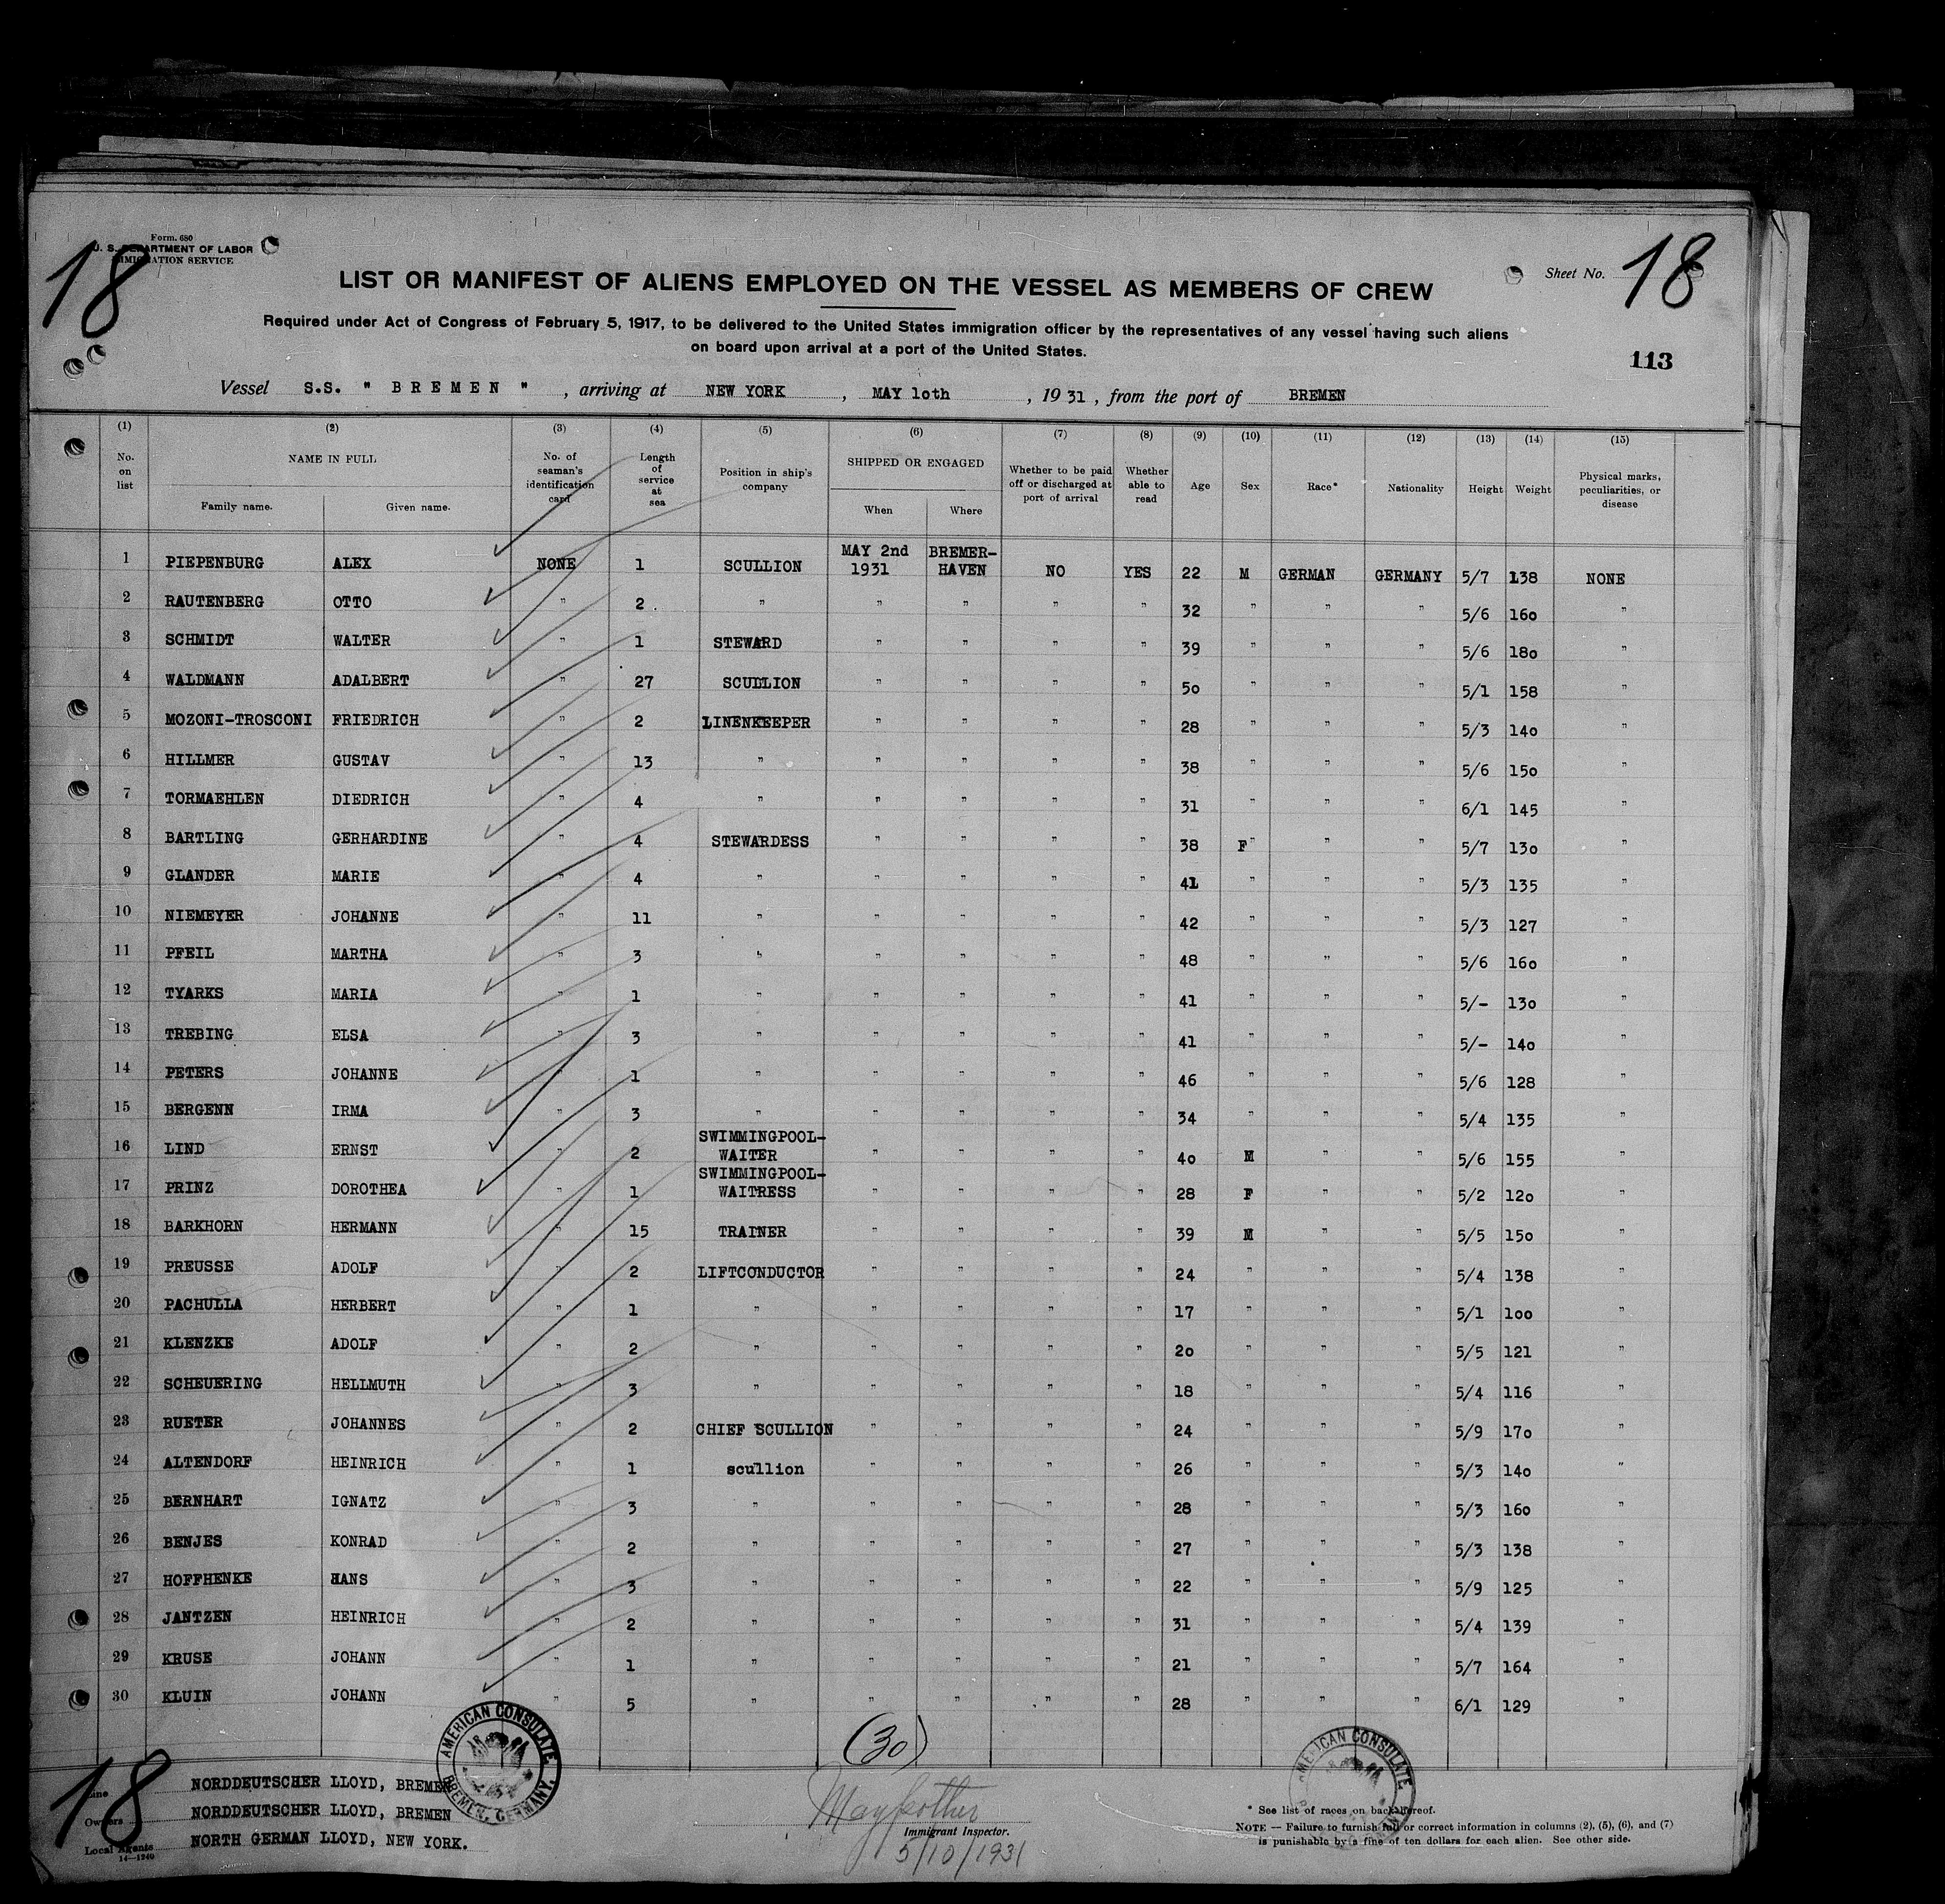 18
Form. 680
U. S. DEPARTMENT OF LABOR
IMMIGRATION SERVICE
Sheet No. 18
LIST OR MANIFEST OF ALIENS EMPLOYED ON THE VESSEL AS MEMBERS OF CREW
Required under Act of Congress of February 5, 1917, to be delivered to the United States immigration officer by the representatives of any vessel having such aliens
on board upon arrival at a port of the United States.
113
Vessel S.S. " BREMEN " , arriving at NEW YORK , MAY 1oth , 19 31 , from the port of BREMEN
(1) (2) (3) (4) (5) (6) (7) (8) (9) (10) (11) (12) (13) (14) (15)
No. on list NAME IN FULL Family name. Given name. No. of seaman's identification card Length of service at sea Position in ship's company SHIPPED OR ENGAGED When Where Whether to be paid off or discharged at port of arrival Whether able to read Age Sex Race* Nationality Height Weight Physical marks, peculiarities, or disease
1 PIEPENBURG ALEX NONE 1 SCULLION MAY 2nd 1931 BREMER-HAVEN NO YES 22 M GERMAN GERMANY 5/7 138 NONE
2 RAUTENBERG OTTO " 2 " " " " " 32 " " " 5/6 16o "
3 SCHMIDT WALTER " 1 STEWARD " " " " 39 " " " 5/6 18o "
4 WALDMANN ADALBERT " 27 SCULLION " " " " 5o " " " 5/1 158 "
5 MOZONI-TROSCONI FRIEDRICH " 2 LINENKEEPER " " " " 28 " " " 5/3 14o "
6 HILLMER GUSTAV " 13 " " " " " 38 " " " 5/6 15o "
7 TORMAEHLEN DIEDRICH " 4 " " " " " 31 " " " 6/1 145 "
8 BARTLING GERHARDINE " 4 STEWARDESS " " " " 38 F" " " 5/7 13o "
9 GLANDER MARIE " 4 " " " " " 41 " " " 5/3 135 "
10 NIEMEYER JOHANNE " 11 " " " " " 42 " " " 5/3 127 "
11 PFEIL MARTHA " 3 " " " " " 48 " " " 5/6 16o "
12 TYARKS MARIA " 1 " " " " " 41 " " " 5/- 13o "
13 TREBING ELSA " 3 " " " " " 41 " " " 5/- 14o "
14 PETERS JOHANNE " 1 " " " " " 46 " " " 5/6 128 "
15 BERGENN IRMA " 3 " " " " " 34 " " " 5/4 135 "
16 LIND ERNST " 2 SWIMMINGPOOL-WAITER " " " " 4o M " " 5/6 155 "
17 PRINZ DOROTHEA " 1 SWIMMINGPOOL-WAITRESS " " " " 28 F " " 5/2 12o "
18 BARKHORN HERMANN " 15 TRAINER " " " " 39 M " " 5/5 15o "
19 PREUSSE ADOLF " 2 LIFTCONDUCTOR " " " " 24 " " " 5/4 138 "
20 PACHULLA HERBERT " 1 " " " " " 17 " " " 5/1 1oo "
21 KLENZKE ADOLF " 2 " " " " " 2o " " " 5/5 121 "
22 SCHEUERING HELLMUTH " 3 " " " " " 18 " " " 5/4 116 "
23 RUETER JOHANNES " 2 CHIEF SCULLION " " " " 24 " " " 5/9 17o "
24 ALTENDORF HEINRICH " 1 scullion " " " " 26 " " " 5/3 14o "
25 BERNHART IGNATZ " 3 " " " " " 28 " " " 5/3 16o "
26 BENJES KONRAD " 2 " " " " " 27 " " " 5/3 138 "
27 HOFFHENKE HANS " 3 " " " " " 22 " " " 5/9 125 "
28 JANTZEN HEINRICH " 2 " " " " " 31 " " " 5/4 139 "
29 KRUSE JOHANN " 1 " " " " " 21 " " " 5/7 164 "
30 KLUIN JOHANN " 5 " " " " " 28 " " " 6/1 129 "
(30)
18
AMERICAN CONSULATE BREMEN, GERMANY.
AMERICAN CONSULATE
Line NORDDEUTSCHER LLOYD, BREMEN
Owners NORDDEUTSCHER LLOYD, BREMEN
Local Agents NORTH GERMAN LLOYD, NEW YORK.
14—1240
Immigrant Inspector.
5/10/1931
* See list of races on back hereof.
NOTE — Failure to furnish full or correct information in columns (2), (5), (6), and (7)
is punishable by a fine of ten dollars for each alien. See other side.